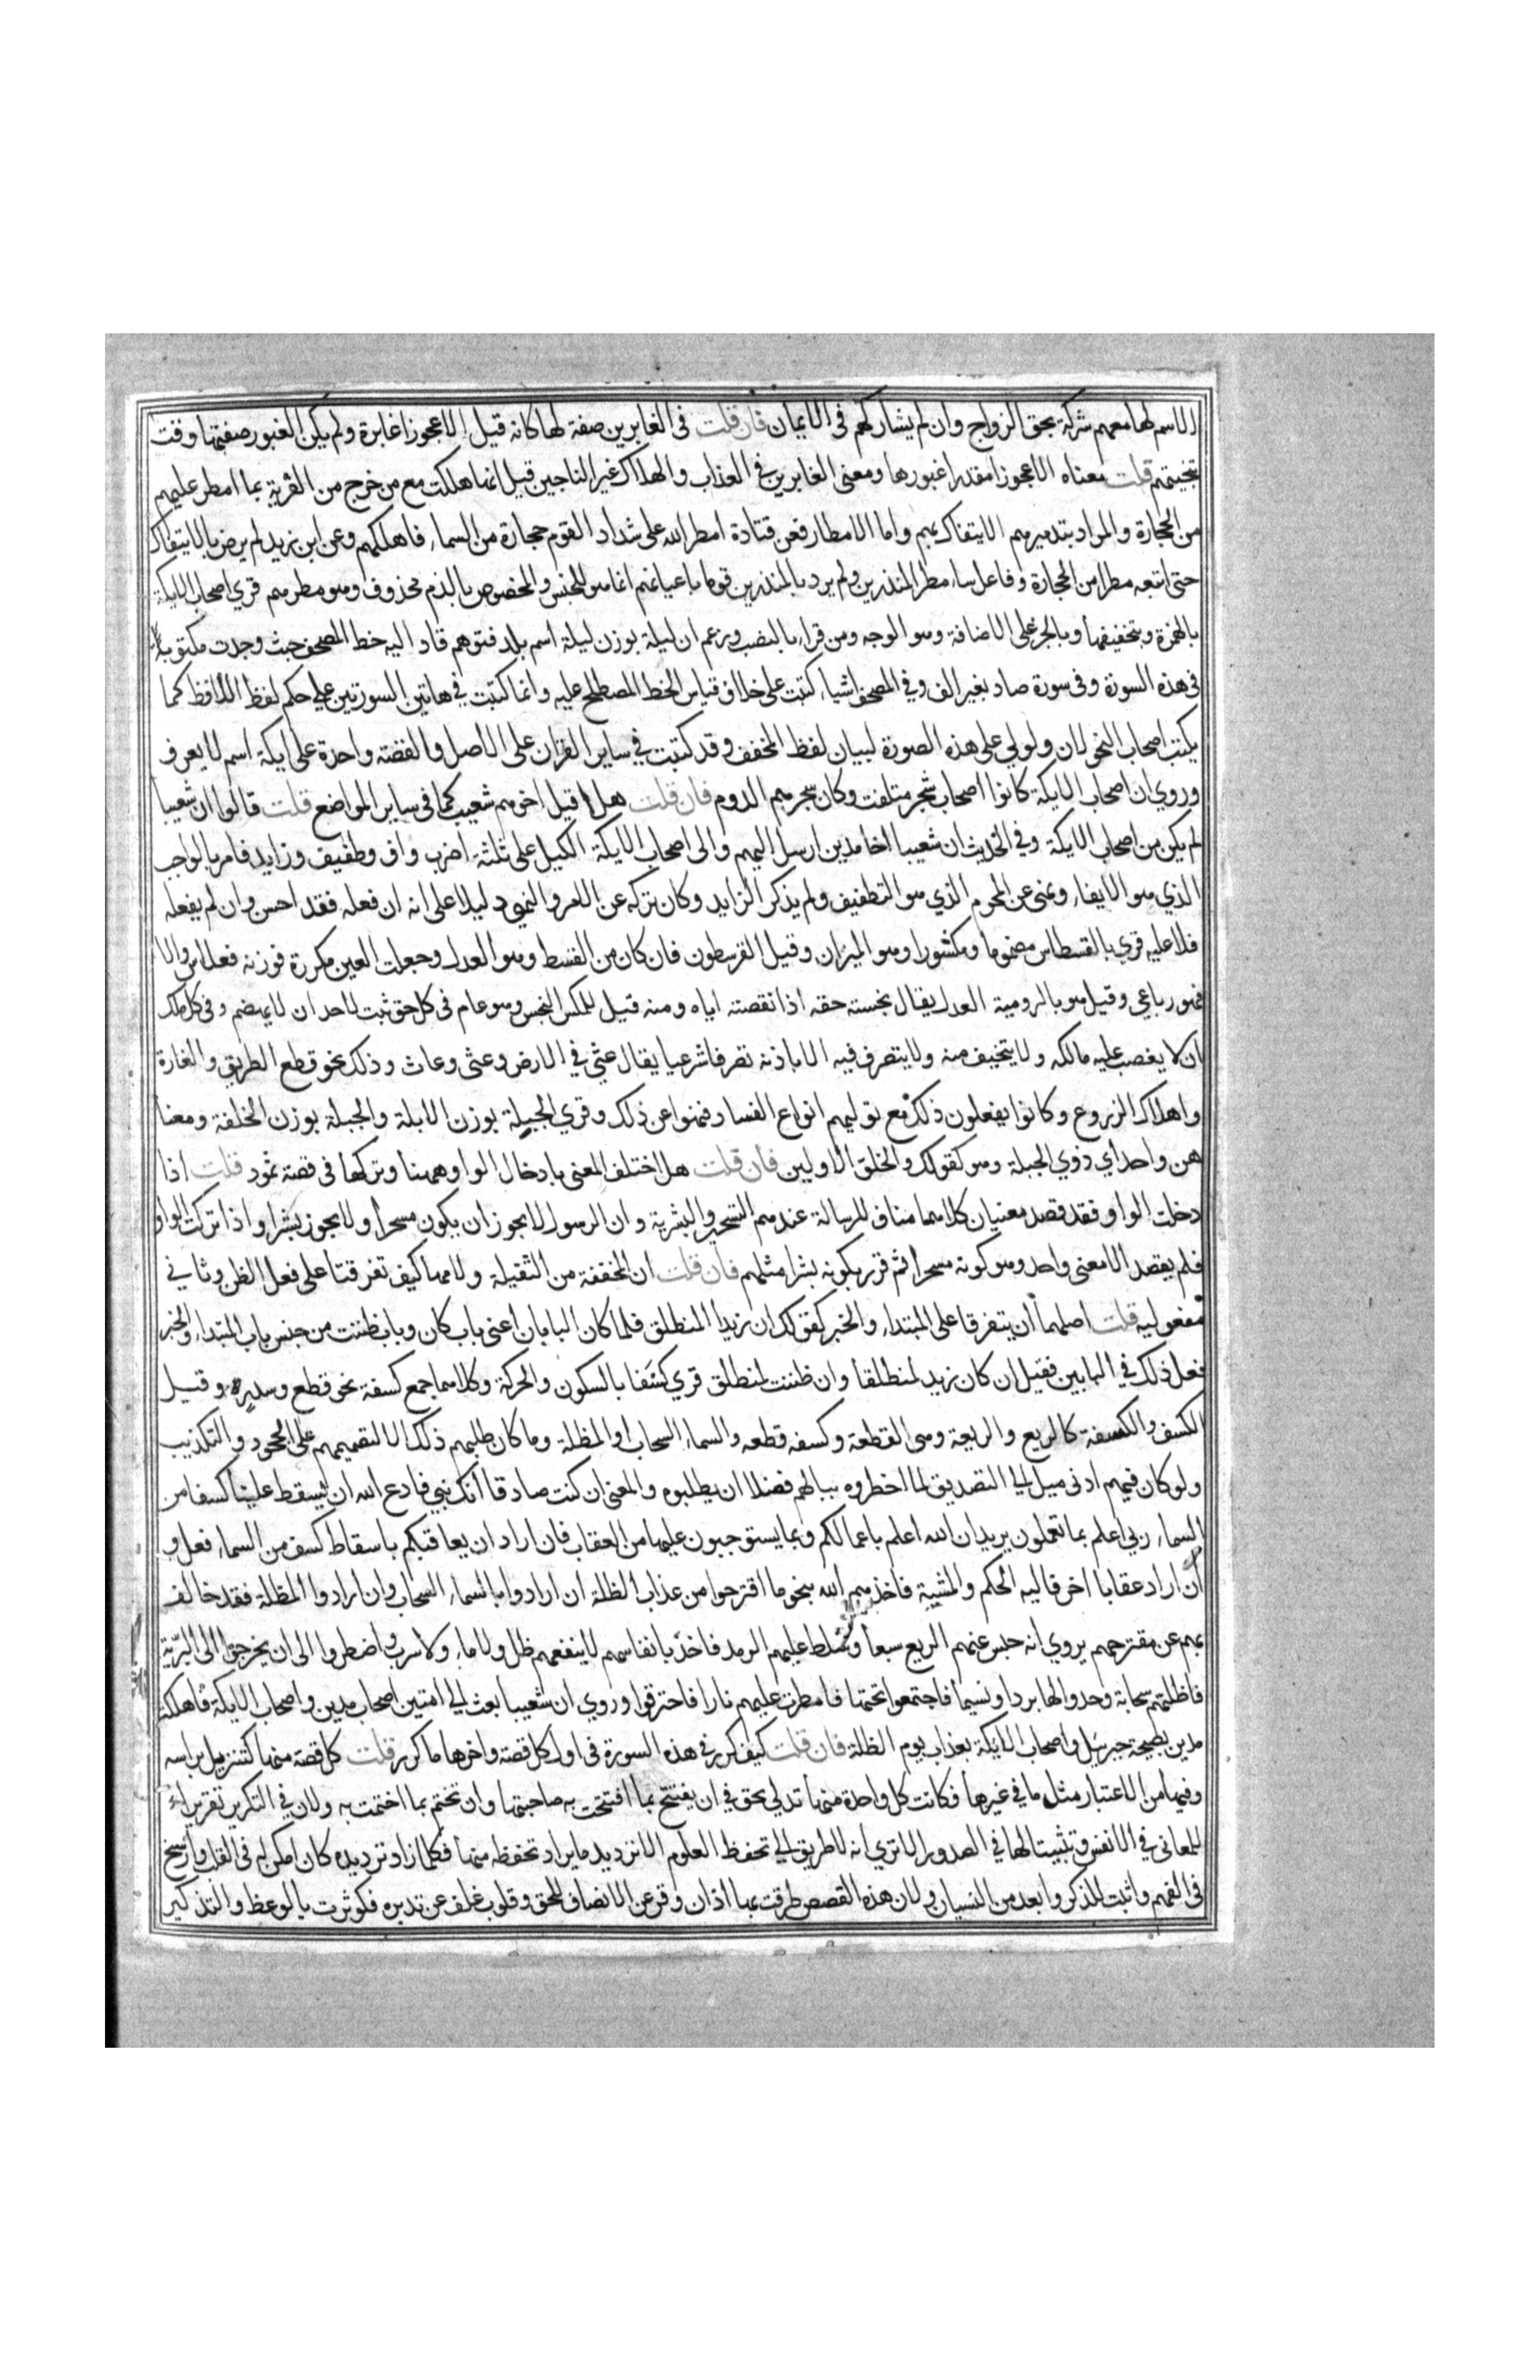 الاسم لها معهم شركة بحق الزواج وان لم يشاركهم فى الايمان فان قلت فى الغابرين صفة لها كانه قيل الا عجوزا غابرة ولم يكن الغبور صفتها وقت
تنجيتهم قلت معناه الا عجوزا مقدرا غبورها ومعنى الغابرين في العذاب والهلاك غير الناجين قيل انها هلكت مع من خرج من القرية بما امطر عليهم
من الحجارة والمراد بتدميرهم الايتفاك بهم واما الامطار فعن قتادة امطر الله على شذاذ القوم حجارة من السماء فاهلكهم وعن ابن زيد لم يرض بالايتفاك
حتى اتبعه مطرا من الحجارة وفاعل ساء مطر المنذرين ولم يرد بالمنذرين قوما باعيانهم انما هو للجنس والمخصوص بالذم محذوف وهو مطرهم قري اصحاب الايكة
بالهمزة وبتخفيفها وبالجر على الاضافة وهو الوجه ومن قراء بالنصب وزعم ان ليكة بوزن ليلة اسم بلد فتوهم قاد اليه خط المصحف حيث وجدت مكتوبة
فى هذه السورة وفى سورة صاد بغير الف وفي المصحف اشياء كتبت على خلاف قياس الخط المصطلح عليه وانما كتبت في هاتين السورتين على حكم لفظ اللافظ كما
يكتب اصحاب النحو لان ولولي على هذه الصورة لبيان لفظ المخفف وقد كتبت في ساير القران على الاصل والقصة واحدة على ايكة اسم لا يعرف
وروي ان اصحاب الايكة كانوا اصحاب شجر ملتفت وكان شجرهم الدوم فان قلت هلا قيل اخوهم شعيب كما فى ساير المواضع قلت قالوا ان شعيبا
لم يكن من اصحاب الايكة وفي الحديث ان شعيبا اخا مدين ارسل اليهم والى اصحاب الايكة الكيل على ثلثة اضرب واف وطفيف وزايد فامر بالواجب
الذي هو الايفاء ونهى عن المحرم الذي هو التطفيف ولم يذكر الزايد وكان تركه عن الامر والنهى دليلا على انه ان فعله فقد احسن وان لم يفعله
فلا عليه قري بالقسطاس مضموما ومكسورا وهو الميزان وقيل القرسطون فان كان من القسط وهو العدل وجعلت العين مكررة فوزنه فعلاس والا
فهو رباعي وقيل هو بالرومية العدل يقال بخسته حقه اذا نقصته اياه ومنه قيل للمكس البخس وهو عام فى كل حق ثبت لاحد ان لا يهضم وفى كل ملك
ان لا يغصب عليه مالكه ولا يتحيف منه ولا يتصرف فيه الا باذنه تصرفا شرعيا يقال عثي في الارض وعثى وعاث وذلك نحو قطع الطريق والغارة
واهلاك الزروع وكانوا يفعلون ذلك مع توليهم انواع الفساد فنهوا عن ذلك وقري الجبلة بوزن الابلة والجبلة بوزن الخلقة ومعنا
هن واحد اي ذوي الجبلة وهو كقولك والخلق الاولين فان قلت هل اختلف المعنى بادخال الواو ههنا وتركها فى قصة ثمود قلت اذا
دخلت الواو فقد قصد معنيان كلاهما مناف للرسالة عندهم التسحير والبشرية وان الرسول لا يجوز ان يكون مسحرا ولا يجوز بشرا واذا تركت الواو
فلم يقصد الا معنى واحد وهو كونه مسحرا ثم قرر بكونه بشرا مثلهم فان قلت ان المخففة من الثقيلة ولامها كيف تفرقتا على فعل الظن وثاني
مفعوليه قلت اصلهما ان يتفرقا على المبتداء والخبر كقولك ان زيدا المنطلق فلما كان البابان اعنى باب كان وباب ظننت من جنس باب المبتداء والخبر
فعل ذلك في البابين فقيل ان كان زيد لمنطلقا وان ظننت لمنطلق قري كسفا بالسكون والحركة وكلاهما جمع كسفة نحو قطع وسدرة وقيل
الكسف والكسفة كالريع والريعة وهى القطعة وكسفه قطعه والسماء السحاب او المظلة وما كان طلبهم ذلك الا لتصميمهم على الجحود والتكذيب
ولو كان فيهم ادنى ميل الى التصديق لما اخطروه ببالهم فضلا ان يطلبوه والمعنى ان كنت صادقا انك نبي فادع الله ان يسقط علينا كسفا من
السماء ربي اعلم بما تعملون يريد ان الله اعلم باعمالكم وبما يستوجبون عليها من العقاب فان اراد ان يعاقبكم باسقاط كسف من السماء فعل و
ان اراد عقابا اخر فاليه الحكم والمشية فاخذهم الله بنحو ما اقترحوا من عذاب الظلة ان ارادوا بالسماء السحاب وان ارادوا المظلة فقد خالف
بهم عن مقترحهم يروي انه حبس عنهم الريع سبعا وسلط عليهم الومد فاخذ بانفاسهم لا ينفعهم ظل ولا ماء ولا سرب واضطروا الى ان يخرجوا الى البرية
فاظلتهم سحابة وجدوا لها بردا ونسيما فاجتمعوا تحتها فامطرت عليهم نارا فاحترقوا وروي ان شعيبا بعث الى امتين اصحاب مدين واصحاب الايكة فاهلكت
مدين بصيحة جبرئيل واصحاب الايكة بعذاب يوم الظلة فان قلت كيف كرر في هذه السورة فى اول كل قصة واخرها ما كرر قلت كل قصة منها كتنزيل براسه
وفيها من الاعتبار مثل ما في غيرها فكانت كل واحدة منها تدلي بحق في ان يفتتح بما افتتحت به صاحبتها وان تختم بما اختمت به ولان في التكرير تقريرا
للمعانى في الانفس وتثبيتا لها في الصدور الا ترى انه لا طريق الى تحفظ العلوم الا ترديد ما يراد تحفظه منها فكلما زاد ترديده كان امكن له فى القلب وارسخ
فى الفهم واثبت للذكر وابعد من النسيان ولان هذه القصص طرقت بها اذان وقر عن الانصاف للحق وقلوب غلف عن تدبره فكوثرت بالوعظ والتذكير